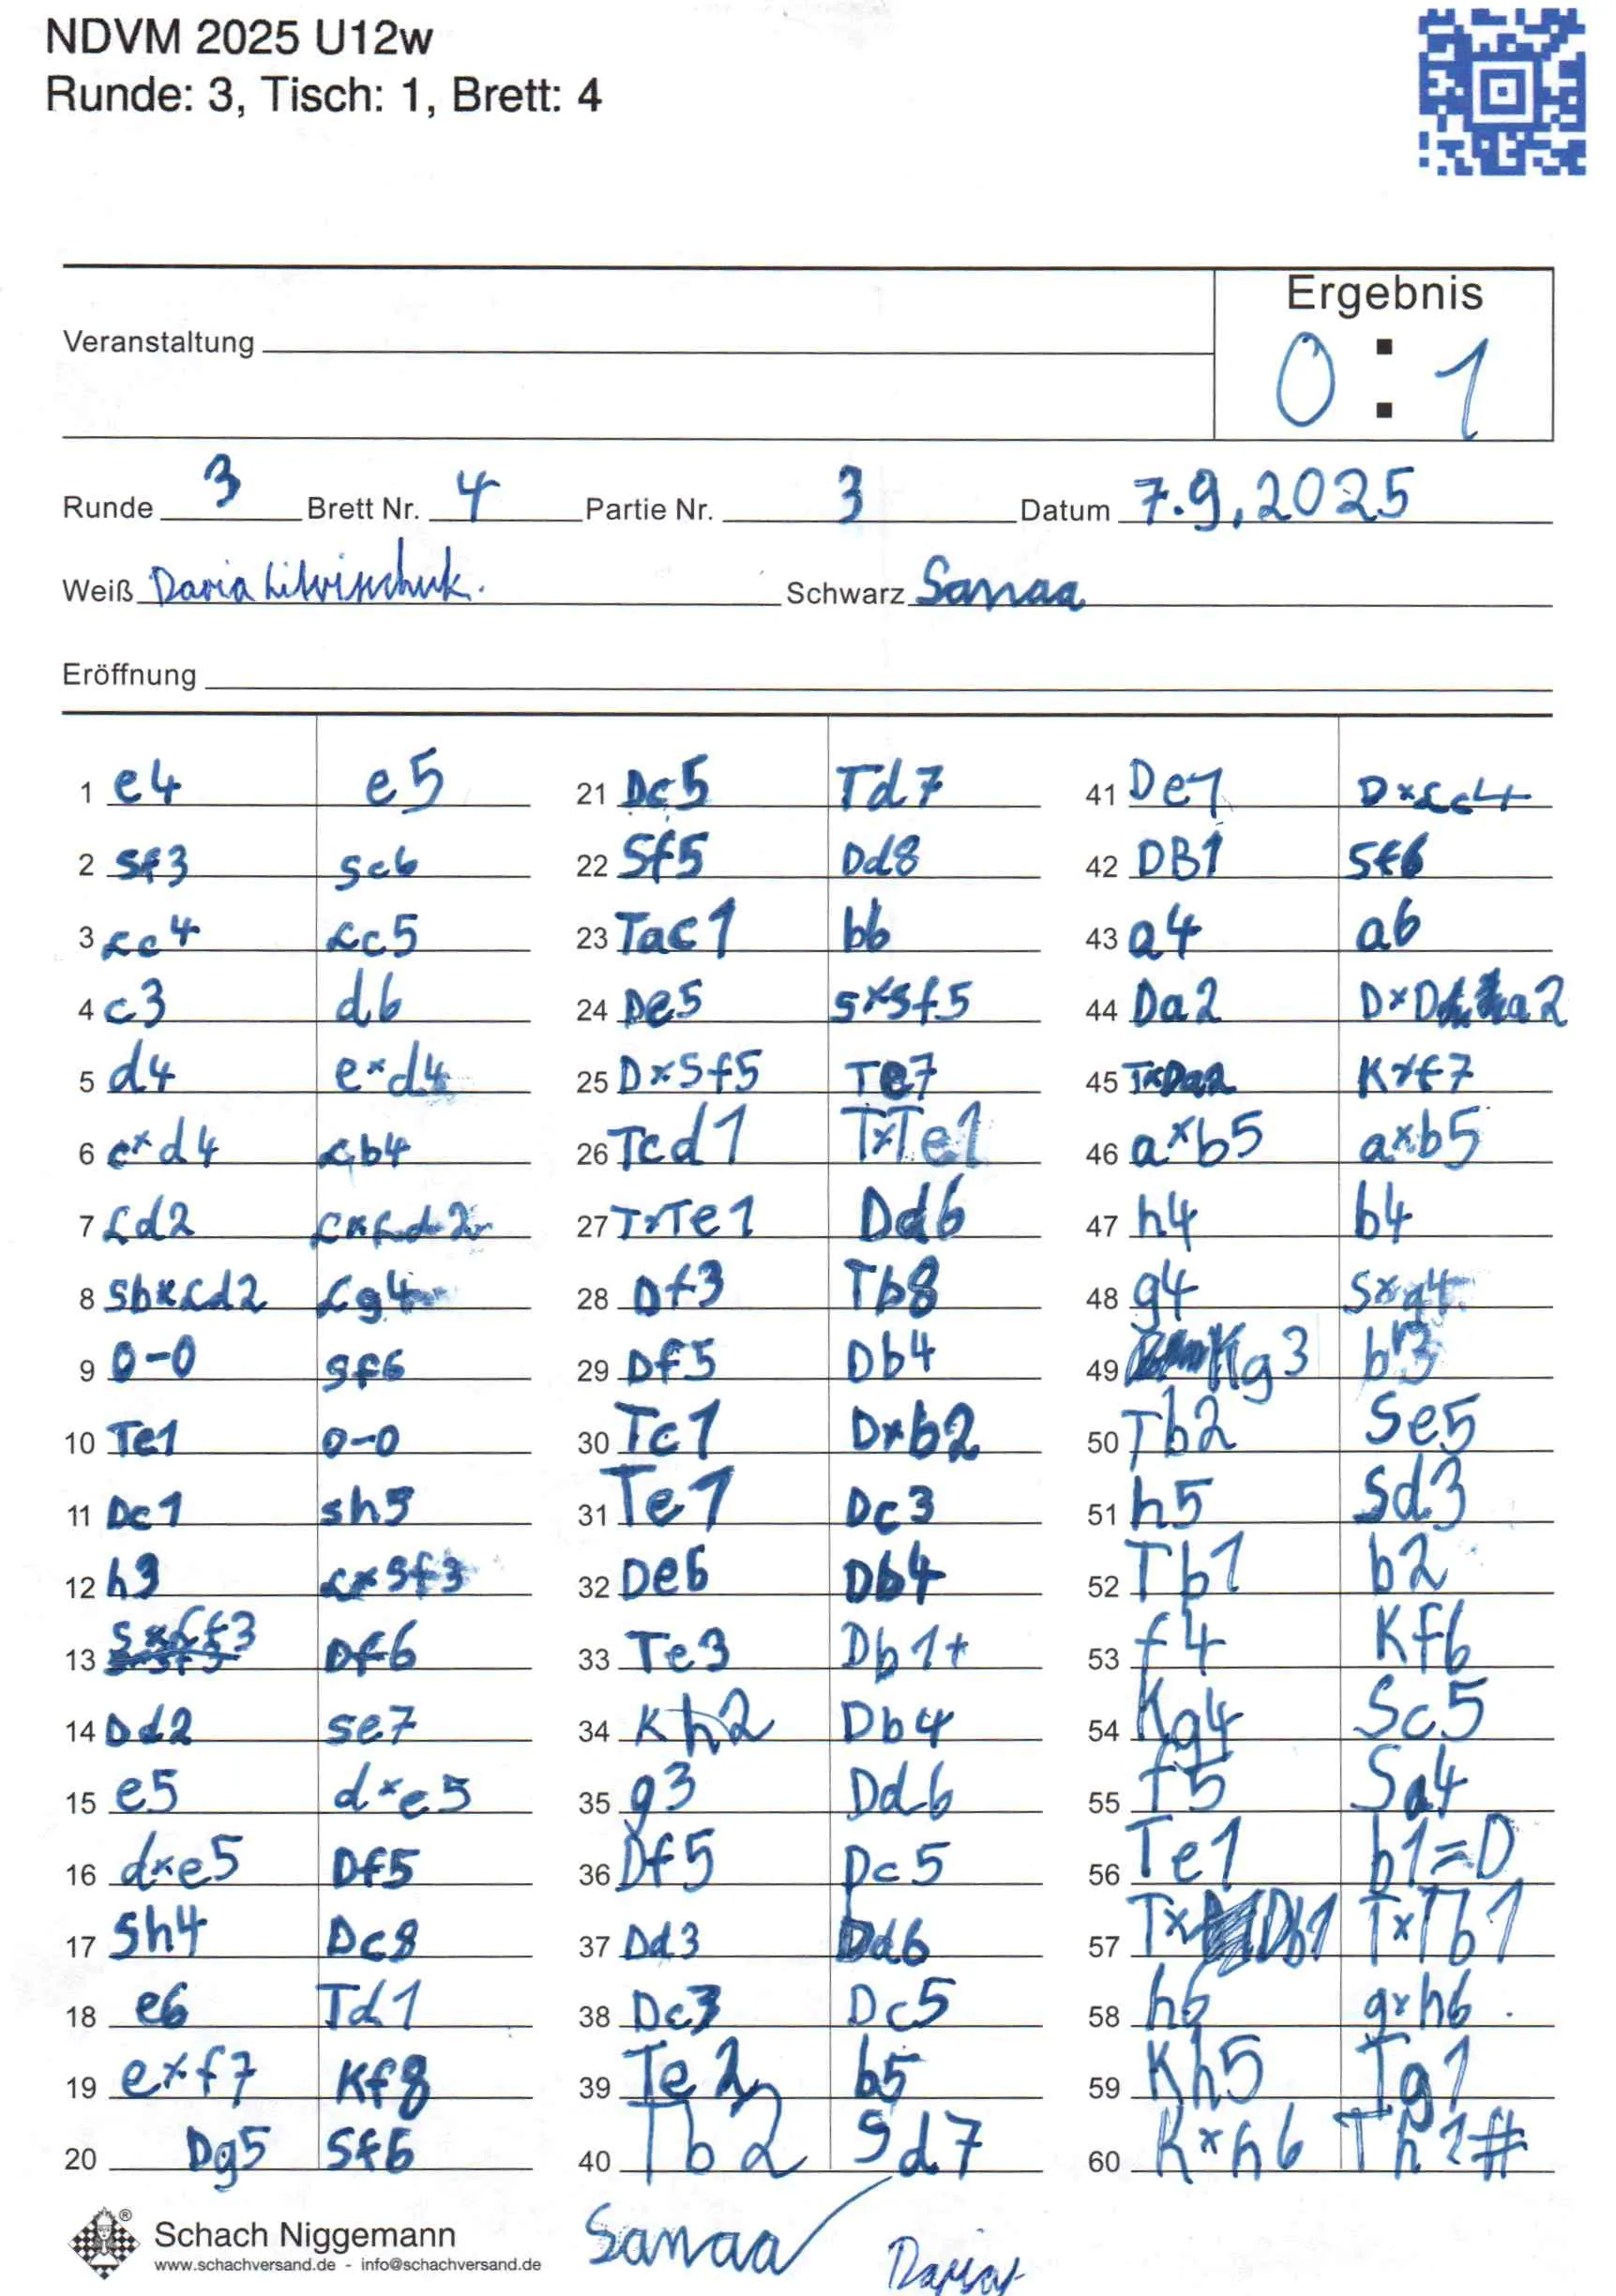 NDVM 2025 U12w
Runde: 3, Tisch: 1, Brett: 4
Ergebnis
Veranstaltung
0 : 1
Runde 3 Brett Nr. 4 Partie Nr. 3 Datum 7.9.2025
Weiß Daria Litvischuk. Schwarz Sanaa
Eröffnung
1 e4 e5
2 Sf3 Sc6
3 Lc4 Lc5
4 c3 d6
5 d4 e×d4
6 c×d4 Lb4
7 Ld2 L×Ld2
8 Sb×Ld2 Lg4
9 0-0 Sf6
10 Te1 0-0
11 Dc1 Sh5
12 h3 L×Sf3
13 S×Lf3 Df6
14 Dd2 Se7
15 e5 d×e5
16 d×e5 Df5
17 Sh4 Dc8
18 e6 Td1
19 e×f7 Kf8
20 Dg5 Sf6
21 Dc5 Td7
22 Sf5 Dd8
23 Tac1 b6
24 De5 S×Sf5
25 D×Sf5 Te7
26 Tcd1 T×Te1
27 T×Te1 Dd6
28 Df3 Tb8
29 Df5 Db4
30 Tc1 D×b2
31 Te1 Dc3
32 De6 Db4
33 Te3 Db1+
34 Kh2 Db4
35 g3 Dd6
36 Df5 Dc5
37 Dd3 Dd6
38 Dc3 Dc5
39 Te2 b5
40 Tb2 Sd7
41 De1 D×Lc4
42 DB1 Sf6
43 a4 a6
44 Da2 D×Da2
45 T×Da2 K×f7
46 a×b5 a×b5
47 h4 b4
48 g4 S×g4
49 Kg3 b3
50 Tb2 Se5
51 h5 Sd3
52 Tb1 b2
53 f4 Kf6
54 Kg4 Sc5
55 f5 Sa4
56 Te1 b1=D
57 T×Db1 T×Tb1
58 h6 g×h6
59 Kh5 Tg1
60 K×h6 Th1#
Schach Niggemann
www.schachversand.de - info@schachversand.de
Sanaa
Daria